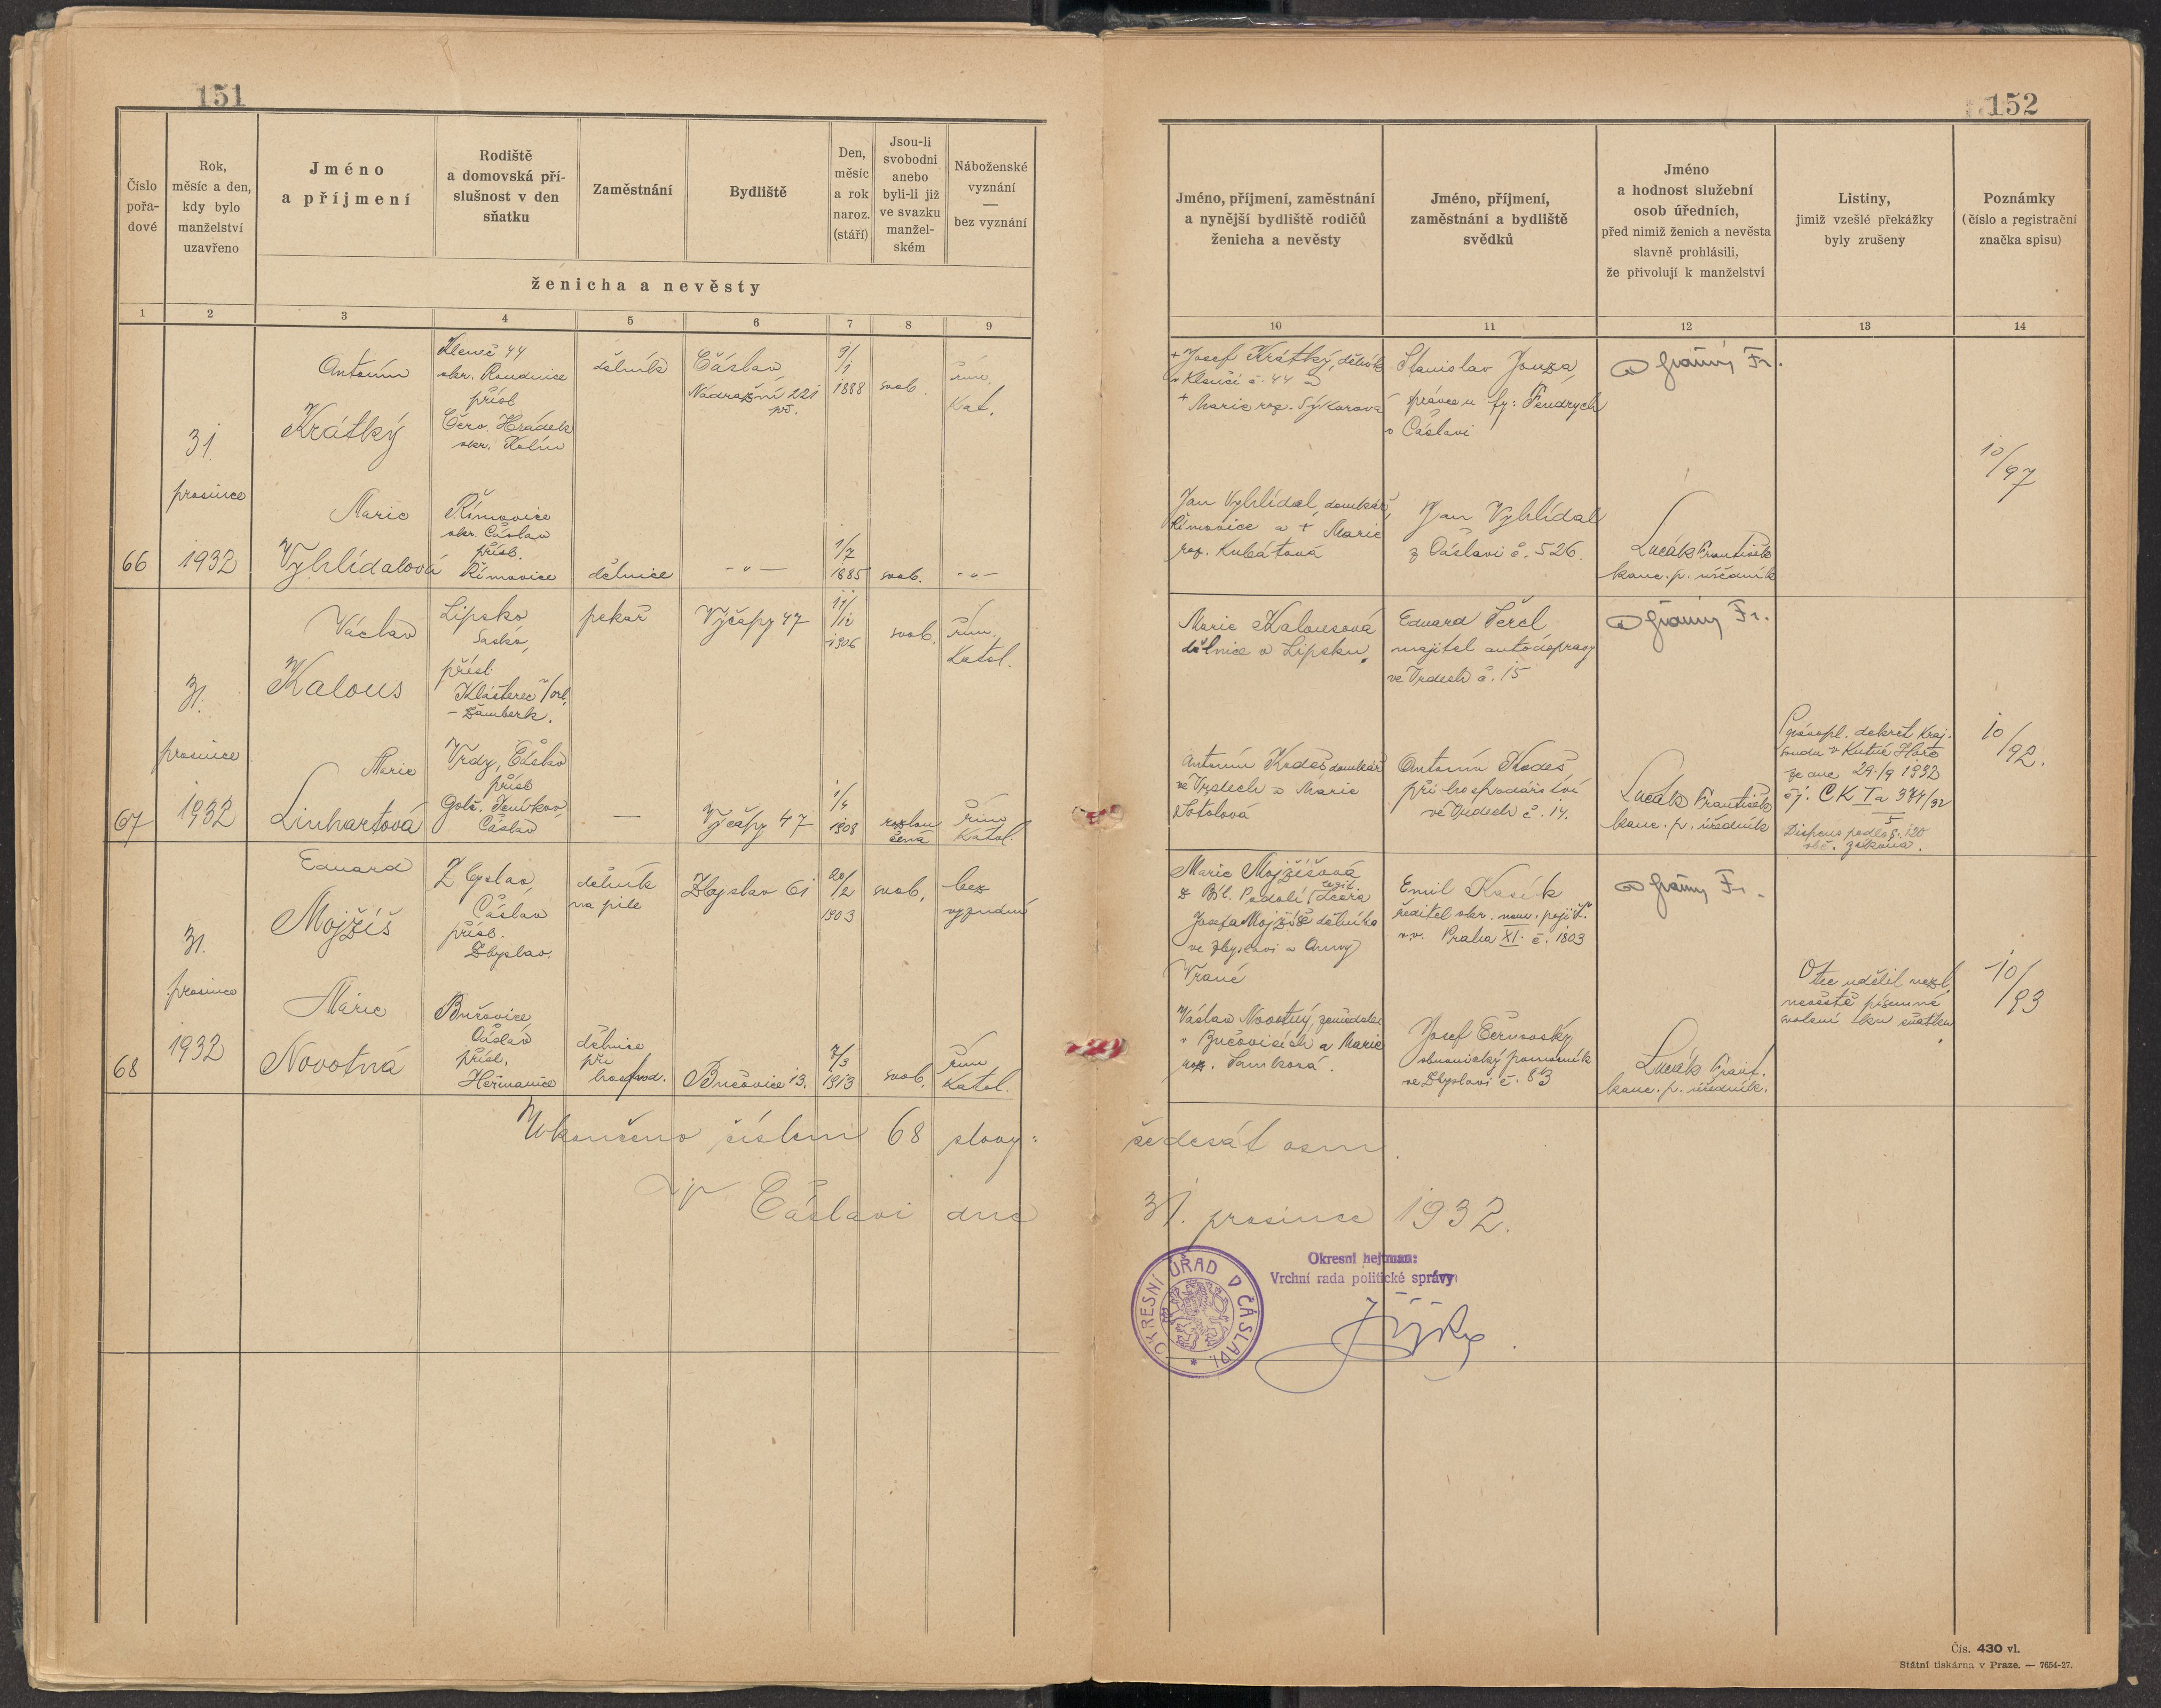 151
Číslo pořa-dové
Rok, měsíc a den, kdy bylo manželství uzavřeno
Jméno a příjmení
Rodiště a domovská pří-slušnost v den sňatku
Zaměstnání
Bydliště
Den, měsíc a rok naroz. (stáří)
Jsou-li svobodni anebo byli-li již ve svazku manžel-ském
Náboženské vyznání — bez vyznání
ženicha a nevěsty
1 2 3 4 5 6 7 8 9
66
31.
prosince
1932
Antonín
Krátký
Kleneč 44
okr. Roudnice
přísl.
Červ. Hrádek
okr. Kolín
dělník
Čáslav
Nádražní 221
př.
9/1
1888
svob.
řím.
kat.
Marie
Vyhlídalová
Římovice
okr. Čáslav
přísl.
Římovice
dělnice
- " -
1/7
1885
svob.
- " -
67
31.
prosince
1932
Václav
Kalous
Lipsko,
Sasko,
přísl.
Klášterec n/orl.
- Žamberk.
pekař
Výčapy 47
11/12
1906
svob.
řím.
katol.
Marie
Linhartová
Vrdy, Čáslav
přísl.
Golč. Jeníkov,
Čáslav
—
Výčapy 47
1/4
1908
rozlou
čená
řím
katol.
68
31.
prosince
1932
Eduard
Mojžíš
Zbyslav,
Čáslav
přísl.
Zbyslav.
dělník
na pile
Zbyslav 61
20/2
1903
svob.
bez
vyznání
Marie
Novotná
Bučovice
Čáslav
přísl.
Heřmanice
dělnice
při
hospod.
Bučovice 13.
7/3
1913
svob.
řím
katol.
Ukončeno číslem 68 slovy:
V Čáslavi dne
152
Jméno, příjmení, zaměstnání
a nynější bydliště rodičů
ženicha a nevěsty
Jméno, příjmení,
zaměstnání a bydliště
svědků
Jméno
a hodnost služební
osob úředních,
před nimiž ženich a nevěsta
slavně prohlásili,
že přivolují k manželství
Listiny,
jimiž vzešlé překážky
byly zrušeny
Poznámky
(číslo a registrační
značka spisu)
10 11 12 13 14
+ Josef Krátký, dělník
v Klenči č. 44 a
+ Marie roz. Sýkorová
Stanislav Jouza,
správce u fy: Fendrych
v Čáslavi
Fr.
Jan Vyhlídal, domkář,
Římovice a + Marie
roz. Kubátová
Jan Vyhlídal
z Čáslavi č. 526.
Lucák František
kanc. p. úředník
10/97
Marie Kalousová
dělnice v Lipsku.
Eduard Šercl
majitel autodopravy
ve Vrdech č. 15
Fr.
Antonín Kodeš domkář
ve Vrdech a Marie
Sotolová
Antonín Kodeš
při hospodářství
ve Vrdech č. 14.
Lucák František
kanc. p. úředník
Právopl. dekret Kraj.
soudu v Kutné Hoře
ze dne 29./9 1932
čj. CK I a 374/32
5
Dispens podle § 120
obč. zákona.
10/92.
Marie Mojžíšová
z Bíl. Podolí, legit. dcera
Josefa Mojžíše dělníka
ve Zbyslavi a Anny
Vrané
Emil Kasík
ředitel okr. nem. pojišť.
v.v. Praha XI. č. 1803
Fr.
Václav Novotný, zemědělec
v Bučovicích a Marie
roz. Samková.
Josef Černovský
obuvnický pomocník
ve Zbyslavi č. 83
Lucák Frant.
kanc. p. úředník.
Otec udělil nezl.
nevěstě písemné
svolení ku sňatku.
10/93
šedesát osm.
31. prosince 1932.
Okresní hejtman:
Vrchní rada politické správy
OKRESNÍ ÚŘAD V ČÁSLAVI.
Čís. 430 vl.
Státní tiskárna v Praze. — 7654-27.